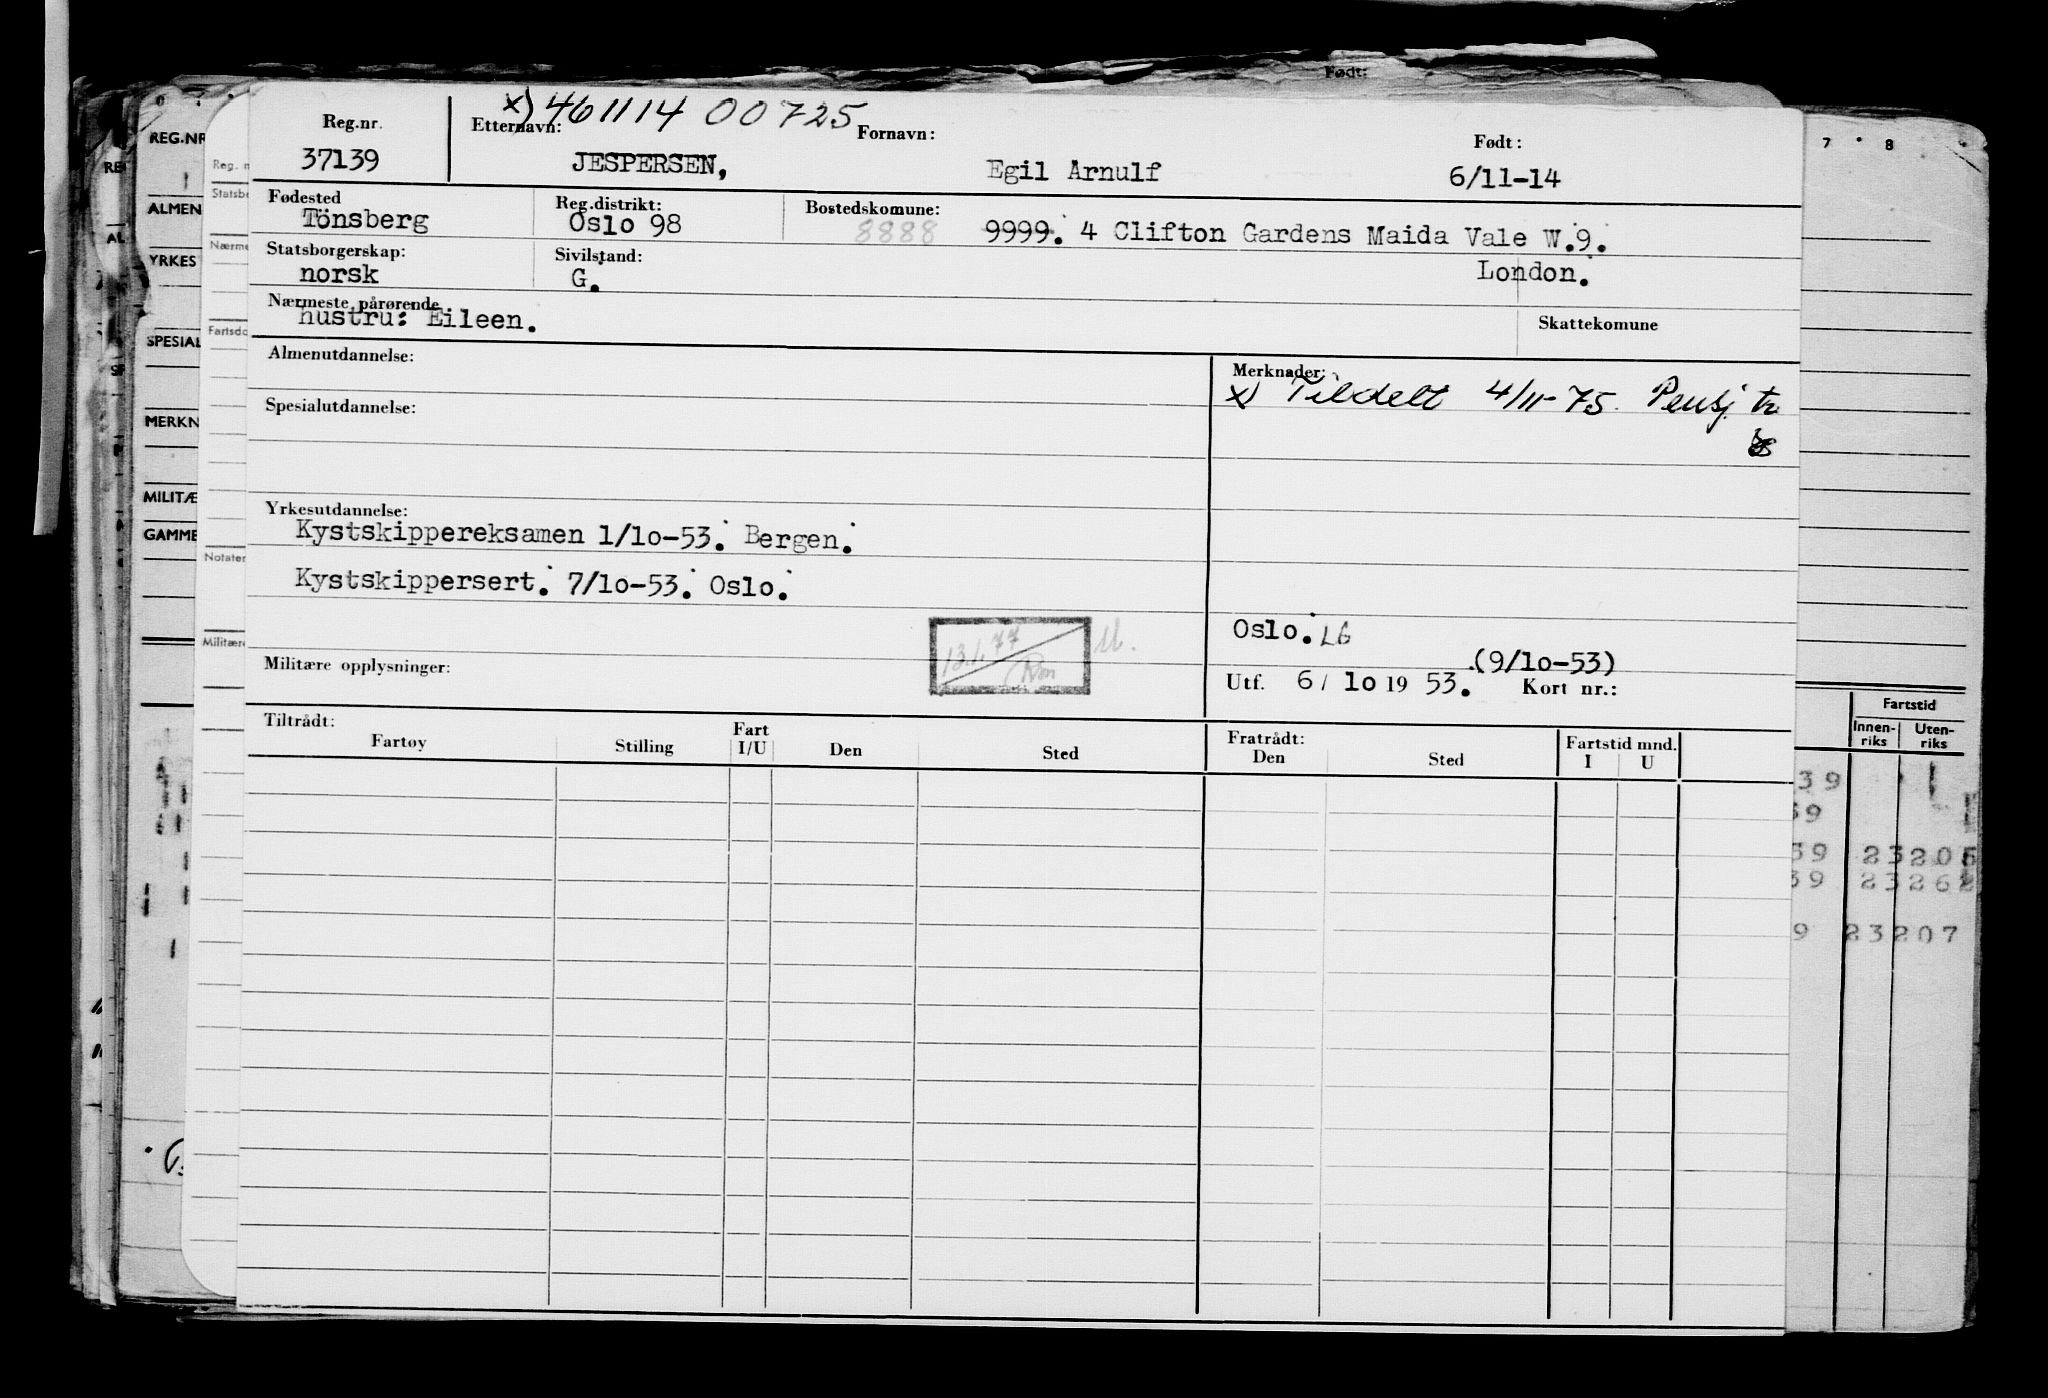 Født:
x) 461114 00725
Reg.nr. Etternavn: Fornavn: Født:
37139 JESPERSEN, Egil Arnulf 6/11-14
Fødested Reg.distrikt: Bostedskomune:
Tönsberg Oslo 98 8888 9999. 4 Clifton Gardens Maida Vale W.9.
Statsborgerskap: Sivilstand:
norsk G. London.
Nærmeste pårørende
hustru: Eileen. Skattekomune
Almenutdannelse: Merknader:
x) Tildelt 4/11-75. Pensj. tr.
Spesialutdannelse:
Yrkesutdannelse:
Kystskippereksamen 1/10-53. Bergen.
Kystskippersert. 7/10-53. Oslo.
Oslo. LG
13.1.77
Militære opplysninger: (9/10-53)
Utf. 6/10 19 53. Kort nr.:
Tiltrådt: Fratrådt:
Fartøy Stilling Fart I/U Den Sted Den Sted Fartstid mnd. I U
REG.NR
ALMEN
YRKES
SPESIAL
MERKN
MILITÆ
GAMME
Reg. n
Statsb
Nærme
Fartsdo
Notater
Militære
7 8
Fartstid
Innen-riks Uten-riks
39
39
39 23205
39 23262
9 23207